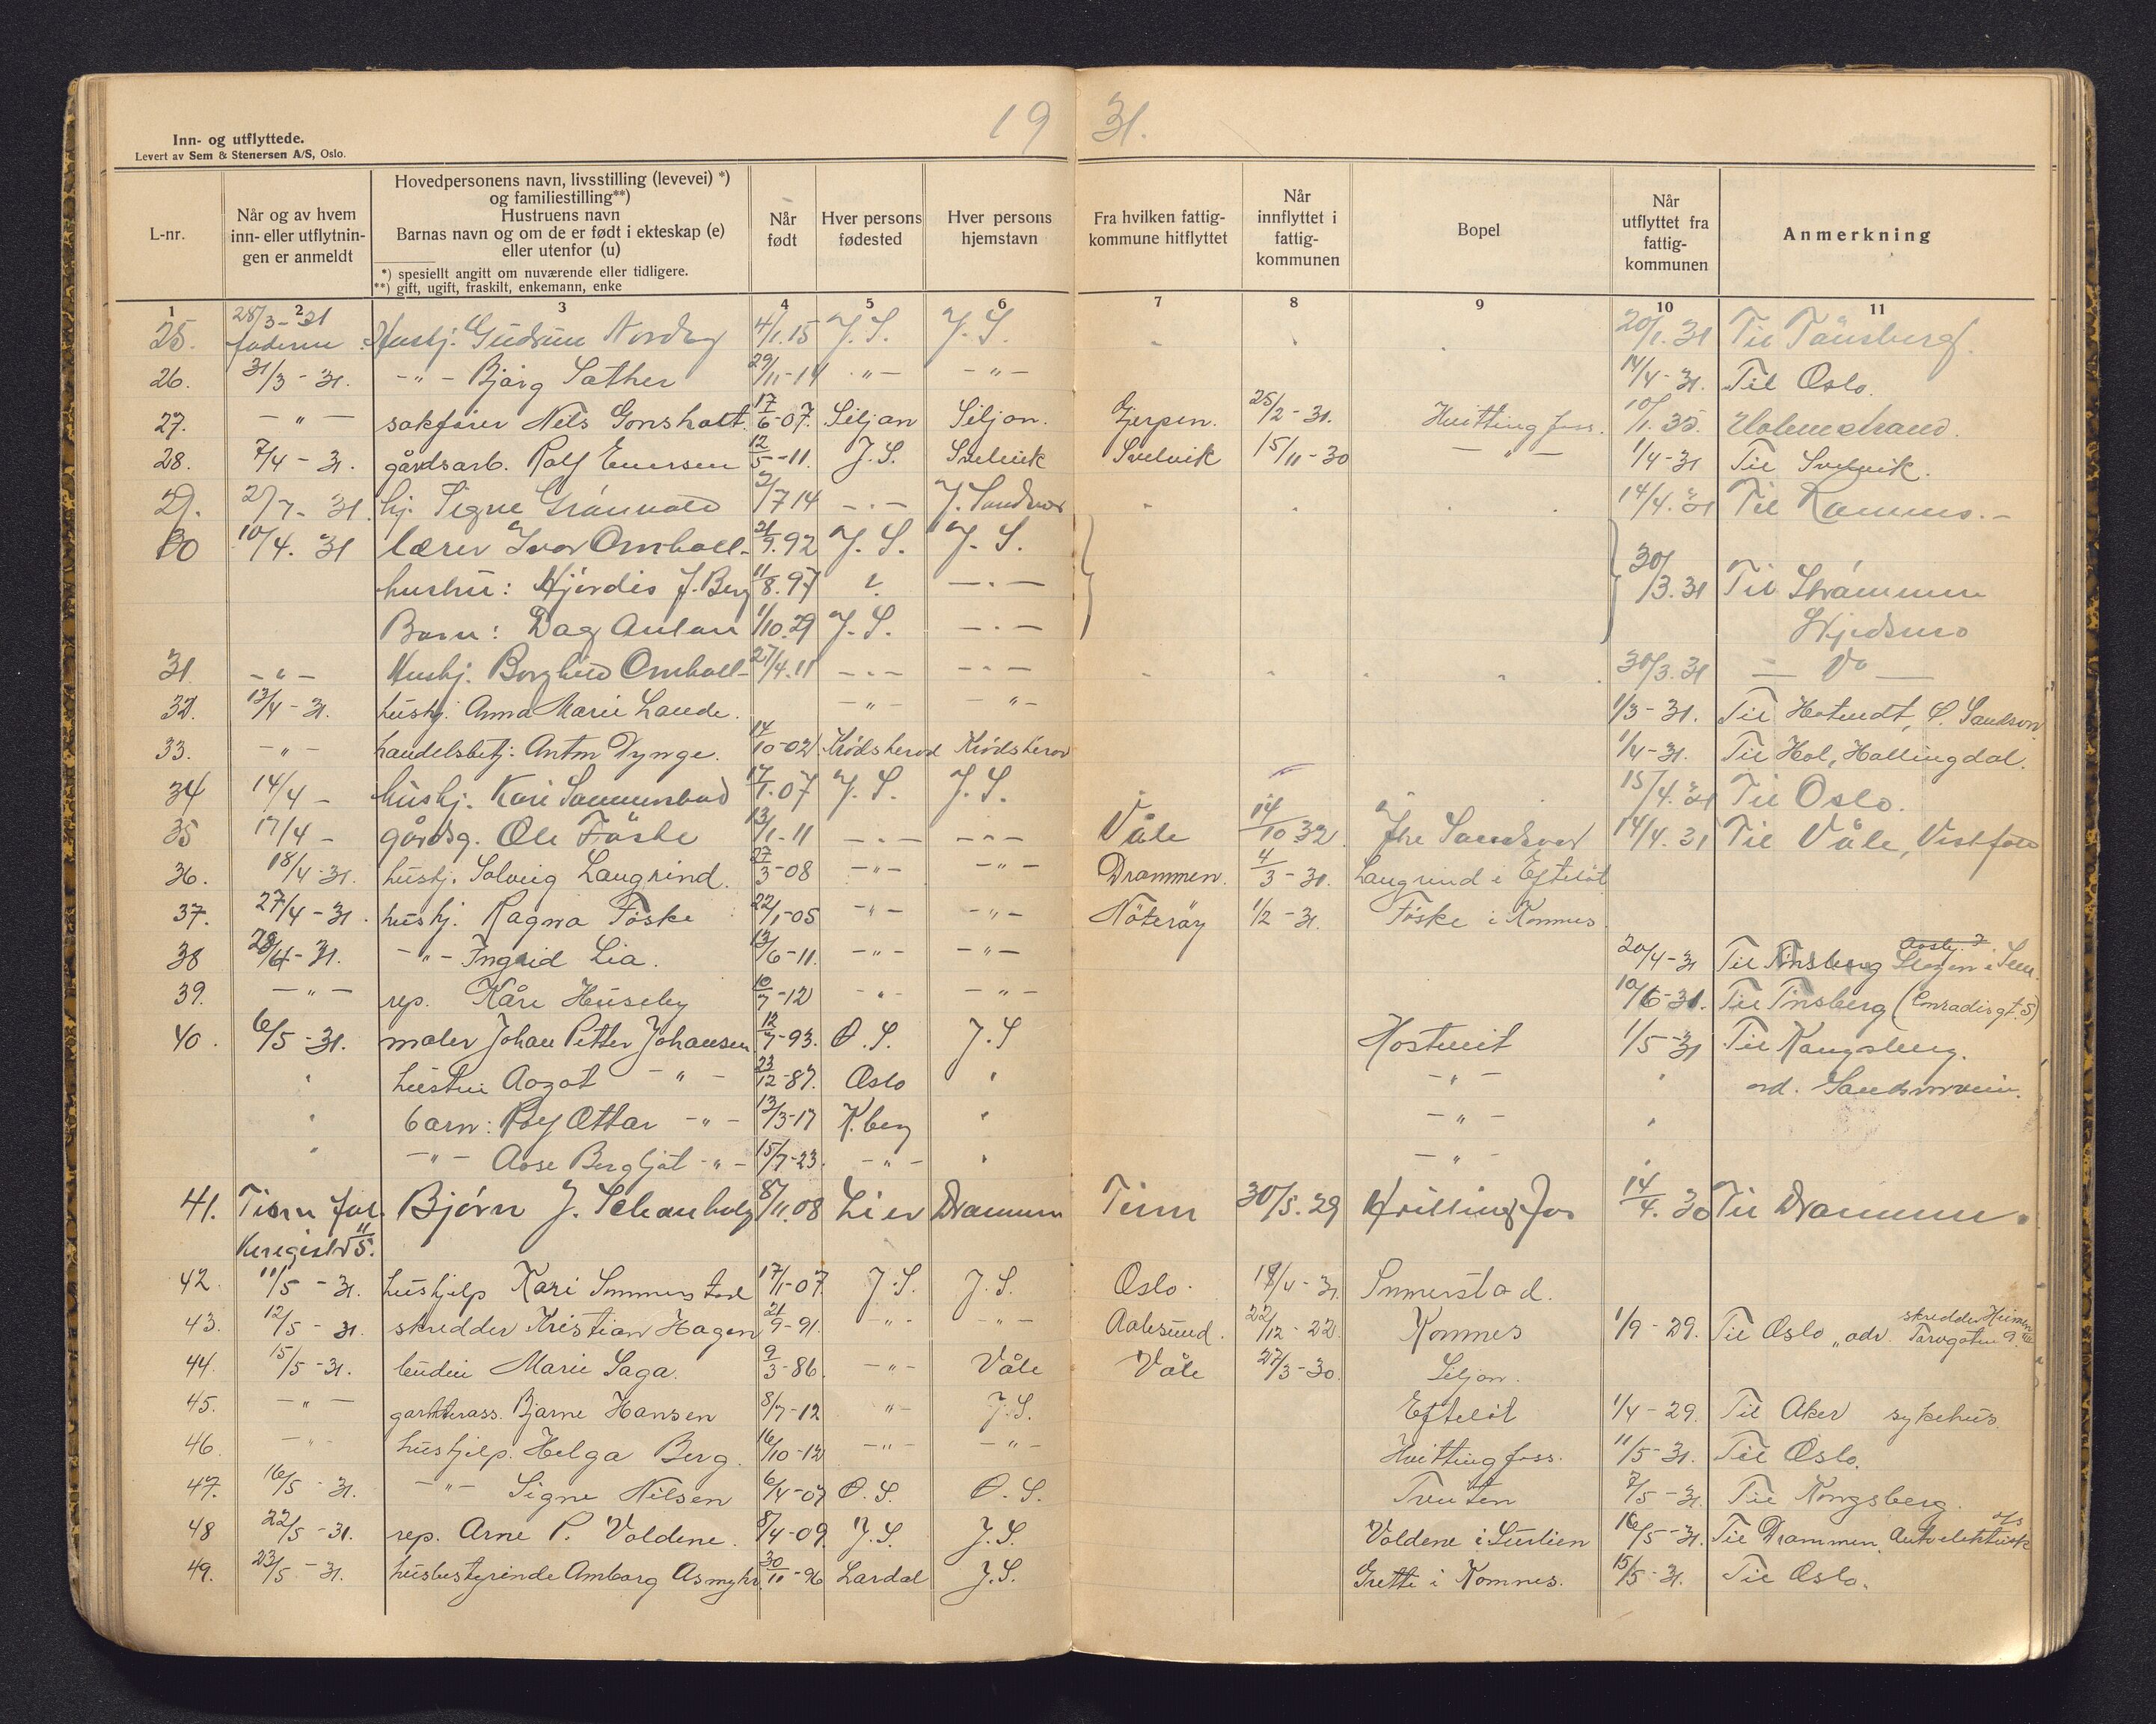 19 31.
Inn- og utflyttede.
Levert av Sem & Stenersen A/S, Oslo.
L-nr.
Når og av hvem
inn- eller utflytnin-
gen er anmeldt
Hovedpersonens navn, livsstilling (levevei) *)
og familiestilling**)
Hustruens navn
Barnas navn og om de er født i ekteskap (e)
eller utenfor (u)
*) spesielt angitt om nuværende eller tidligere.
**) gift, ugift, fraskilt, enkemann, enke
Når
født
Hver persons
fødested
Hver persons
hjemstavn
Fra hvilken fattig-
kommune hitflyttet
Når
innflyttet i
fattig-
kommunen
Bopel
Når
utflyttet fra
fattig-
kommunen
Anmerkning
1 2 3 4 5 6 7 8 9 10 11
25. 28/3-31 faderen Hushj. Gudrun Nordby 4/1.15 J.S. J.S. 20/1.31 Til Tönsberg.
26. 31/3-31. -"- Bjørg Sather 29/11-14 -"- -"- 14/4-31. Til Oslo.
27. -"- sakfører Nils Gonsholt. 17/6-07. Siljan Siljan. Gjerpen. 25/2-31. Hvittingfoss. 10/1.35. Holmestrand.
28. 7/4-31. gårdsarb. Rolf Enersen 12/5-11. J.S. Svelvik Svelvik 15/11-30 -"- 1/4-31 Til Svelvik.
29. 2/7-31. hj. Signe Grönvold 2/7 14 -"- J. Sandsvær 14/4.31 Til Ramnes.-
30 10/4.31 lærer Ivar Omholt- 21/9.92 J.S. J.S. 30/3.31 Til Strömmen
hustru: Hjördis J. Berg 11/8.97 ? -"-
Barn: Dag Anton 1/10.29 J.S. -"- Skjedsmo
31 -"- Hushj. Borghild Omholt- 27/4.11 -"- -"- 30/3.31 - Do -
32. 13/4-31. hushj. Anna Marie Lande. -"- -"- 1/3-31. Til Hostvedt, Ø. Sandsvær
33. -"- handelsbetj. Anton Dynge. 14/10-02 Krödsherad Krödsherad 1/4-31. Til Hol, Hallingdal.
34 14/4- hushj. Kari Sommerstad 17/1.07 J.S. J.S. 15/4.31 Til Oslo.
35 17/4- gårdsg. Ole Föske 13/1-11 -"- -"- Våle 14/10 32. Ytre Sandsvær 14/4.31 Til Våle, Vestfold
36. 18/4-31. hushj. Solveig Langrind. 27/3-08 -"- -"- Drammen. 4/3-31. Langrind i Efteløt
37. 27/4-31. hushj. Ragna Föske 22/1-05 -"- -"- Nöteröy 1/2-31. Föske i Komnes
38 28/4-31. -"- Ingrid Lia. 13/6-11. -"- -"- 20/4-31 Til Tønsberg Slagen i Sem.
39. -"- rep. Kåre Huseby 10/7-12 -"- -"- 10/6-31. Til Tønsberg (Conradisgt. 5)
40. 6/5-31. maler Johan Petter Johansen 12/7-93. Ø.S. J.S Hostveit 1/5-31 Til Kongsberg.
" hustru Aagot -"- 23/12-87. Oslo " -"- " ad. Sandsværvein.
" barn: Roy Ottar -"- 13/3-17 K.berg " -"- "
" -"- Aase Bergljot -"- 15/7-23. -"- " -"- "
41. Tinn fol. Bjørn J. Schanbolg 8/11.08 Lier Drammen Tinn 30/5.29 Hvittingfos 14/4.30 Til Drammen.
keregistr 11/5.
42. 11/5-31. hushjelp Kari Sommerstad 17/1-07. J.S. J.S. Oslo. 18/4-31 Sommerstad.
43. 12/5-31. skredder Kristian Hagen 21/9-91. -"- -"- Aalesund. 22/12-22. Komnes 1/9-29. Til Oslo, adr. skredder Heimen Torvgaten 9.
44. 15/5-31. budeie Marie Saga. 9/3-86. -"- Våle Våle 27/3-30. Siljan.
45. -"- gartnerass. Bjarne Hansen 8/7-12 " J.S. Efteløt 1/4-29. Til Aker sykehus.
46. -"- hushjelp. Helga Berg. 16/10-12 -"- -"- Hvittingfoss. 11/5-31. Til Oslo.
47. 16/5-31. -"- Signe Nilsen 6/4-07 Ø.S. Ø.S. Tveiten 7/5-31 Til Kongsberg.
48 22/5-31. rep. Arne P. Voldene. 8/4-09. J.S. J.S. Voldene i Surlien 16/5-31. Til Drammen, Autoelektrisk a/s
49. 23/5-31. husbestyrinde Amborg Asmyhr 30/11-96 Lardal J.S. Grette i Komnes. 15/5-31. Til Oslo.